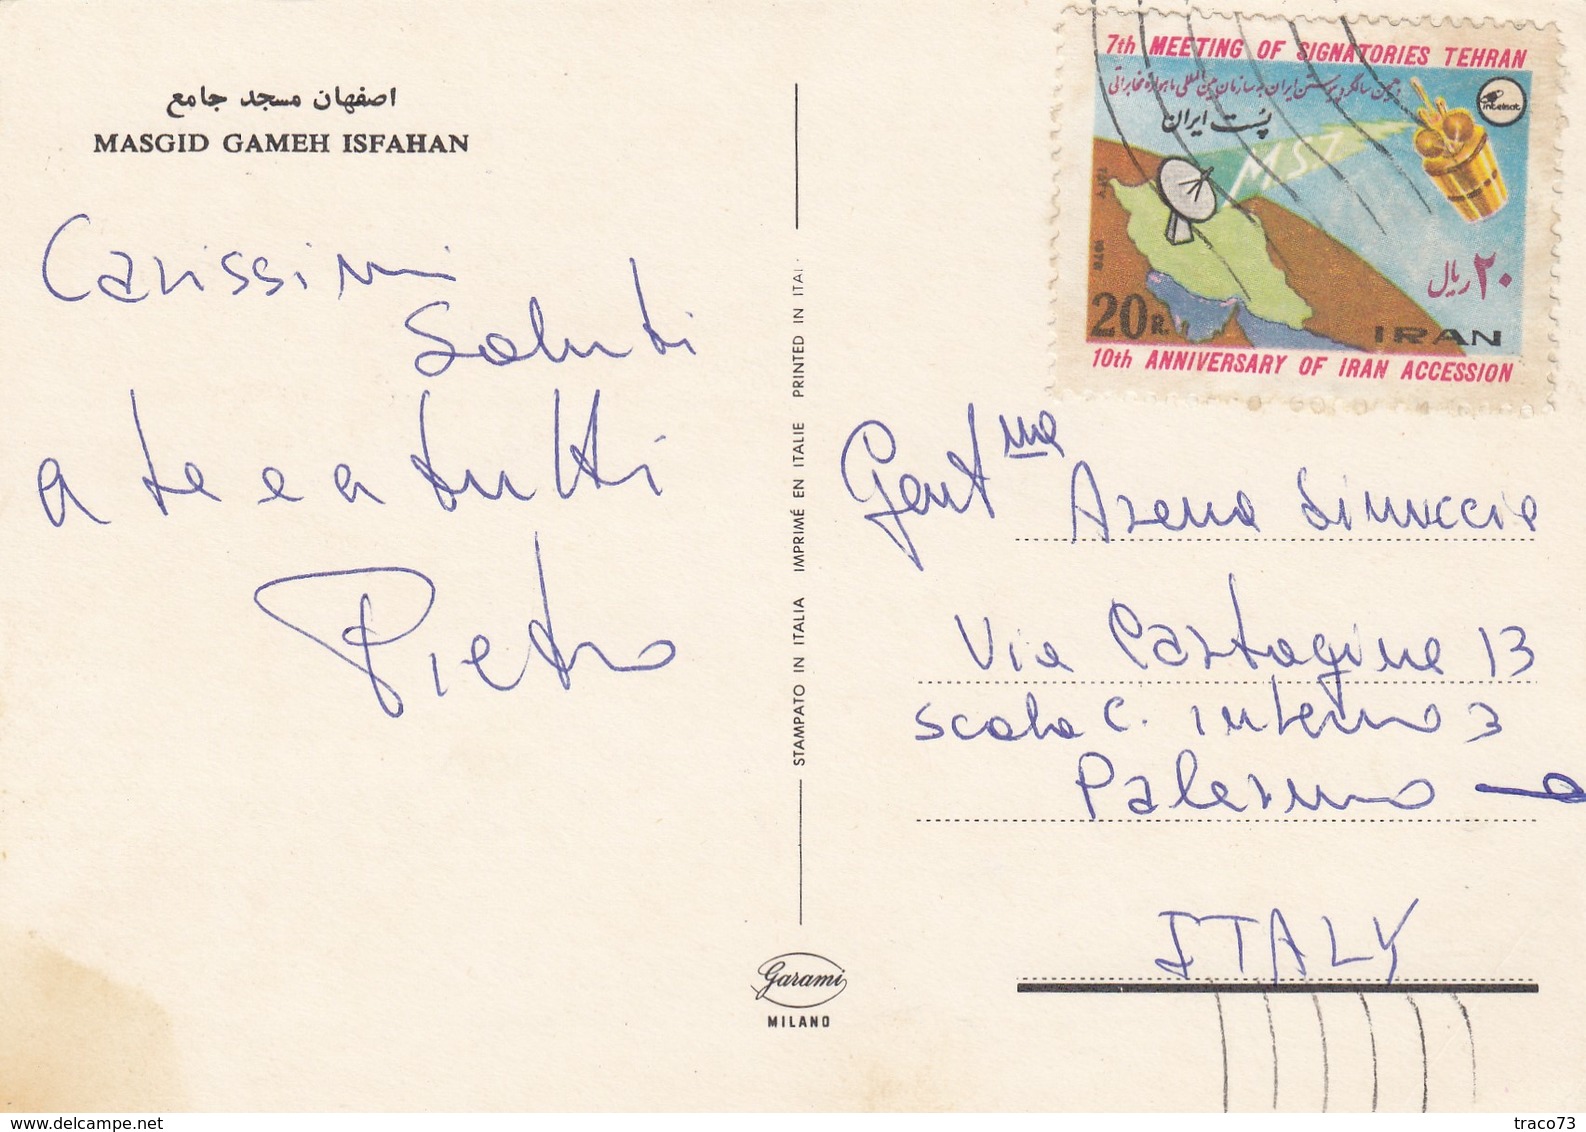 اصفهان مسجد جامع
MASGID GAMEH ISFAHAN
Carissimi
Saluti
a te e a tutti
Pietro
STAMPATO IN ITALIA IMPRIMÉ EN ITALIE PRINTED IN ITAL
Garami
MILANO
7th MEETING OF SIGNATORIES TEHRAN
intelsat
پست ایران
MS7
1978
۲۰ ریال
20 R.
IRAN
10th ANNIVERSARY OF IRAN ACCESSION
Gent ma
Arena
Via Cartagine 13
scala C. interno 3
Palermo
ITALY
traco73
www.delcampe.net